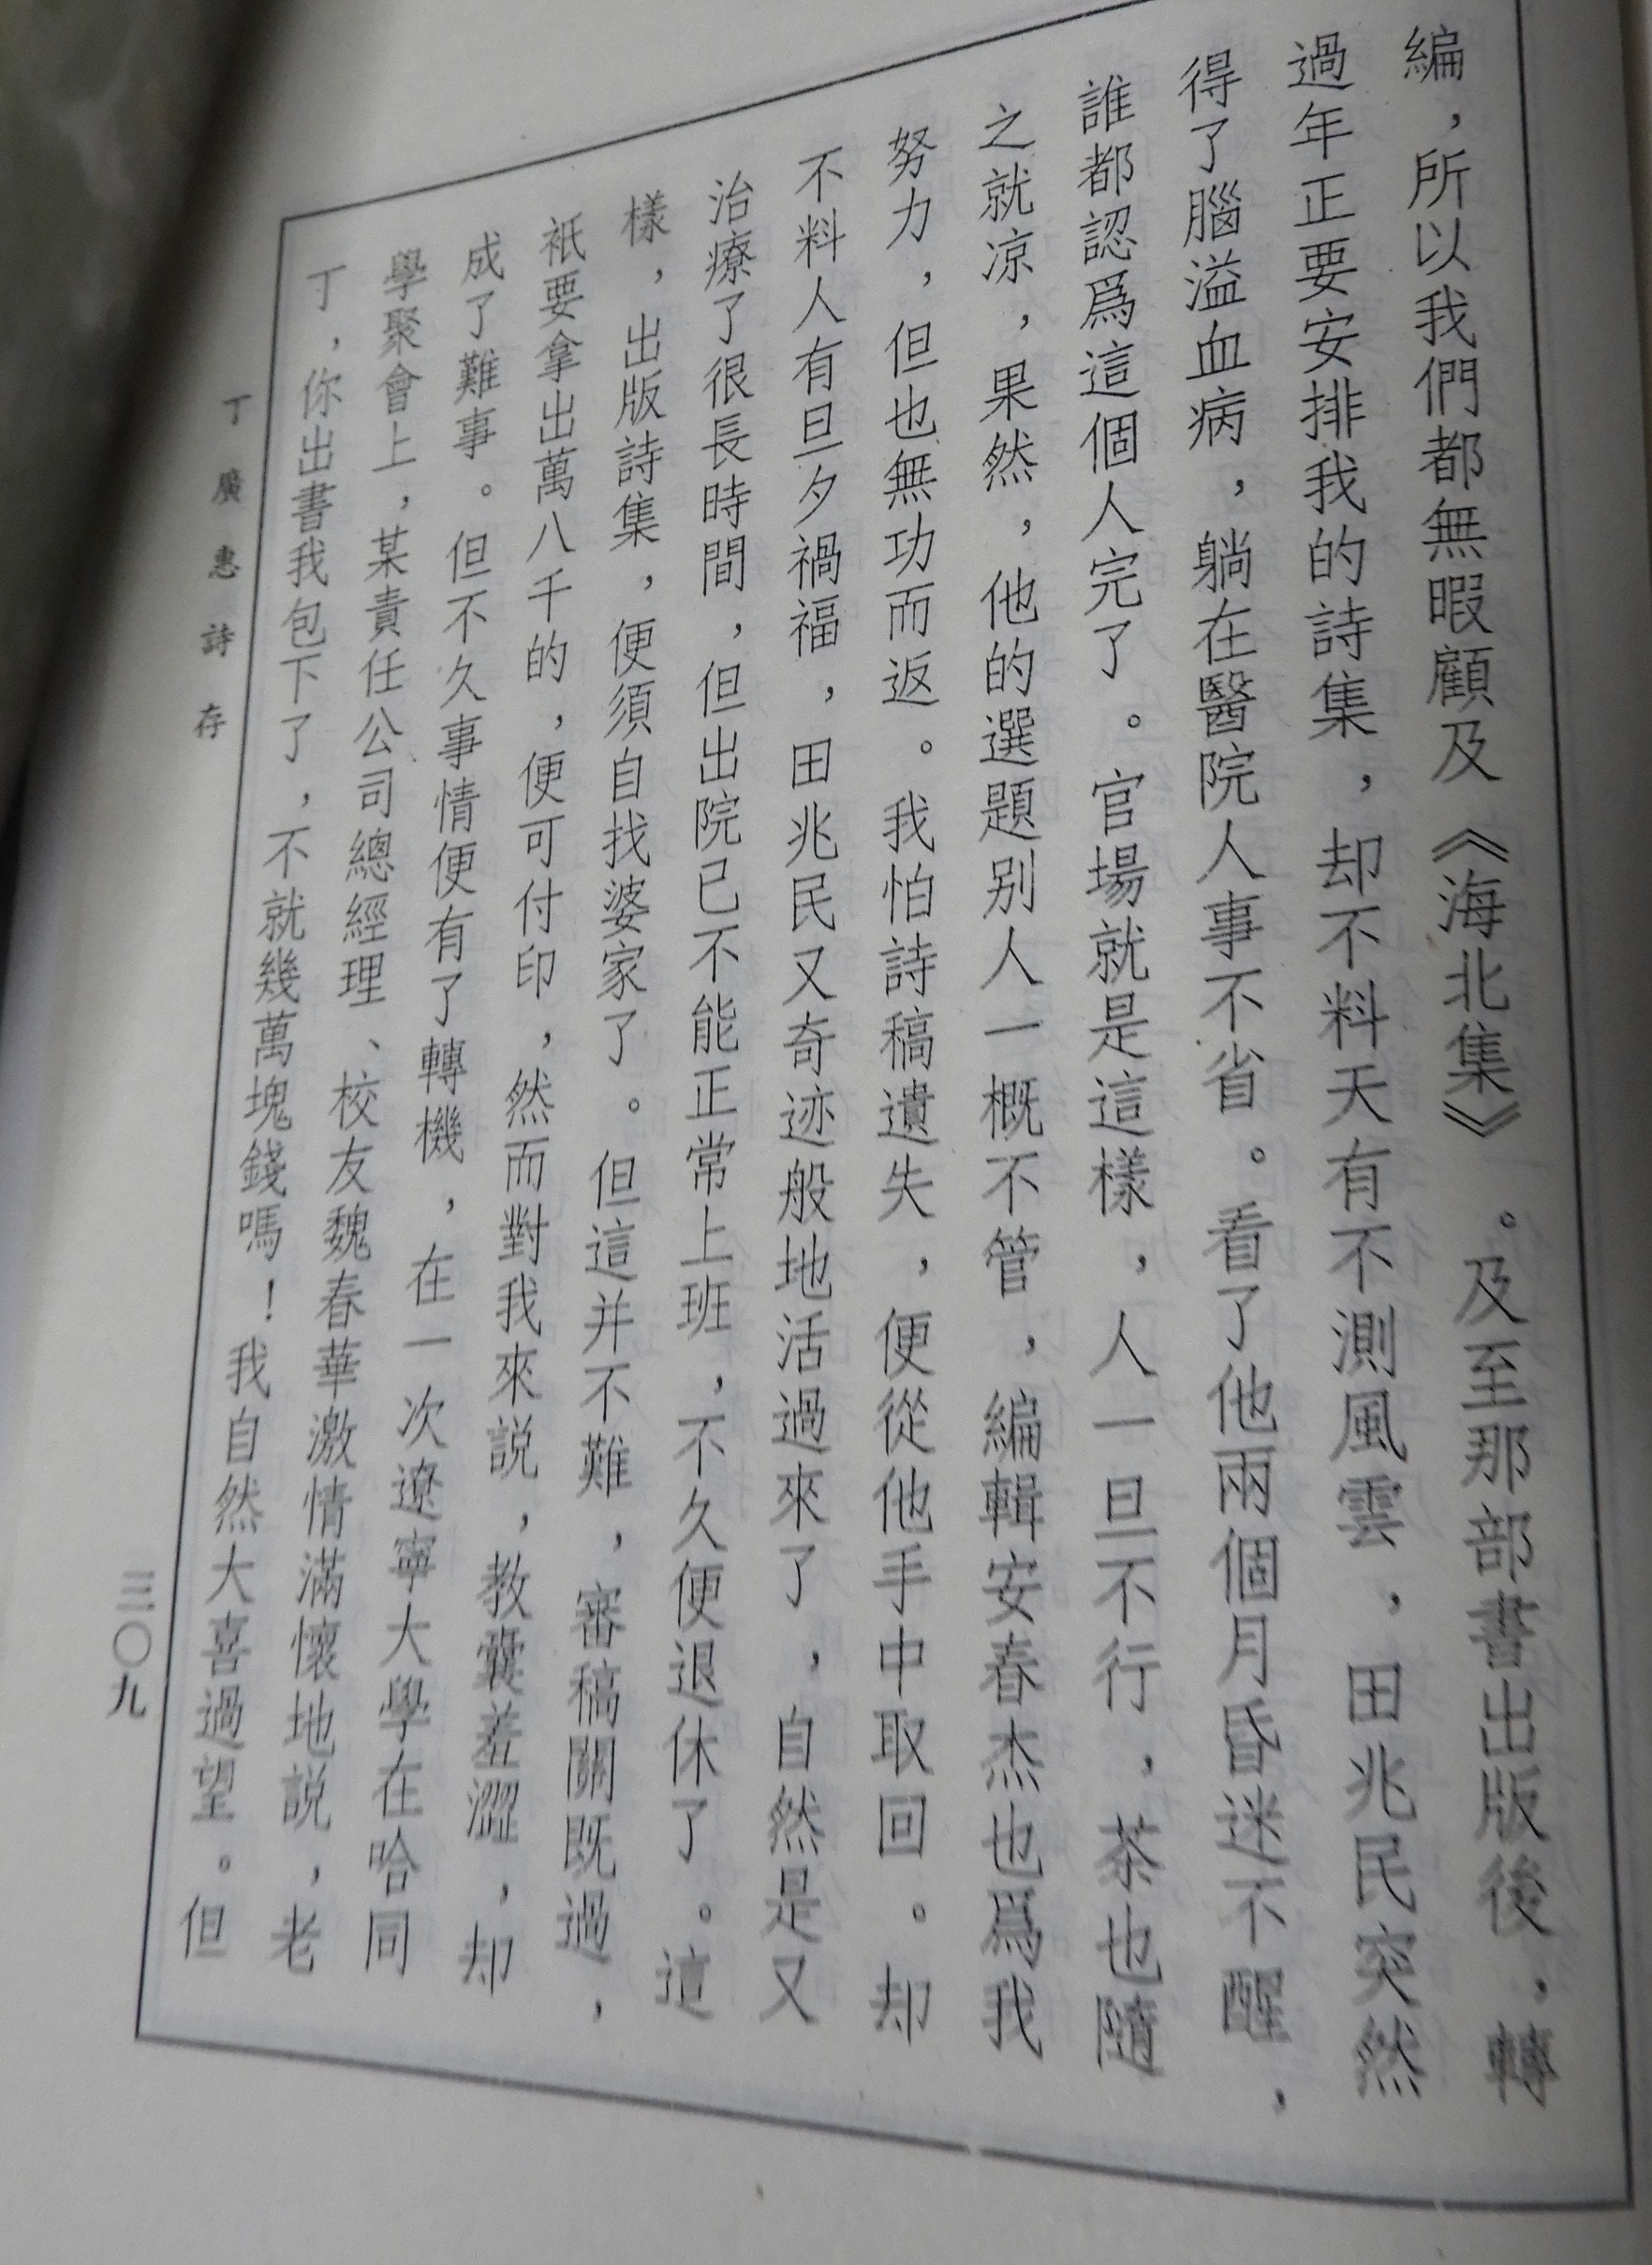 編，所以我們都無暇顧及《海北集》。及至那部書出版後，轉
過年正要安排我的詩集，却不料天有不測風雲，田兆民突然
得了腦溢血病，躺在醫院人事不省。看了他兩個月昏迷不醒，
誰都認爲這個人完了。官場就是這樣，人一旦不行，茶也隨
之就凉，果然，他的選題别人一概不管，編輯安春杰也爲我
努力，但也無功而返。我怕詩稿遺失，便從他手中取回。却
不料人有旦夕禍福，田兆民又奇迹般地活過來了，自然是又
治療了很長時間，但出院已不能正常上班，不久便退休了。這
樣，出版詩集，便須自找婆家了。但這并不難，審稿關既過，
衹要拿出萬八千的，便可付印，然而對我來説，教囊羞澀，却
成了難事。但不久事情便有了轉機，在一次遼寧大學在哈同
學聚會上，某責任公司總經理、校友魏春華激情滿懷地説，老
丁，你出書我包下了，不就幾萬塊錢嗎！我自然大喜過望。但
丁廣惠詩存
三〇九